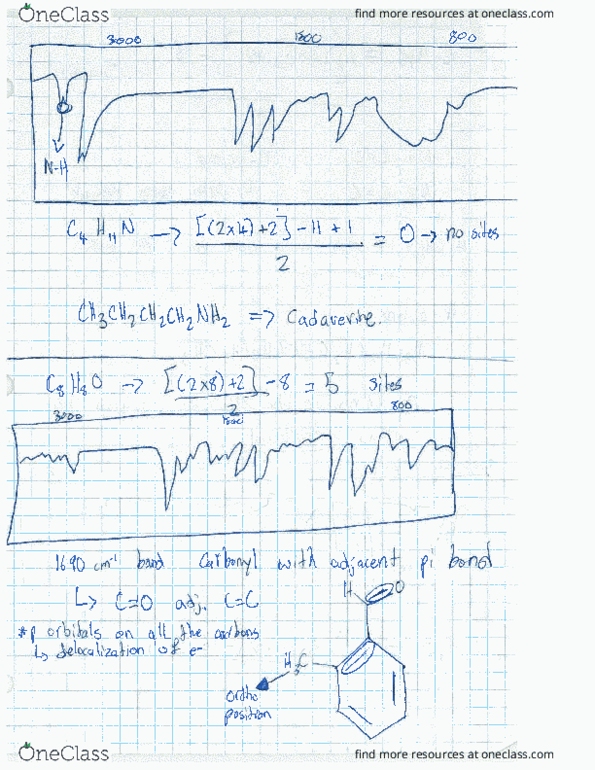 OneClass
find more resources at oneclass.com
3000 1800 800
N-H
C4 H11 N → [(2x4)+2] - 11 + 1 = 0 → no sites
2
CH3CH2CH2CH2NH2 => Cadaverine.
C8H8O → [(2x8)+2] - 8 = 5 sites
2
3000 1800 800
1690 cm-1 band Carbonyl with adjacent pi bond
↳ C=O adj. C=C
*p orbitals on all the carbons
↳ delocalization of e-
H O
H3C
ortho
position
OneClass
find more resources at oneclass.com